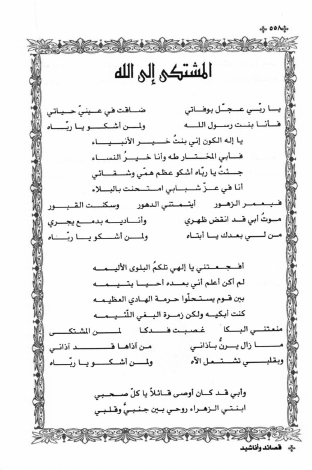 ٥٥٨
المشتكى إلى الله
يا ربّي عجّل بوفاتي ضاقت في عينيّ حياتي
فأنا بنت رسول الله ولمن أشكو يا ربّاه
يا إله الكون إني بنتُ خير الأنبياء
فأبي المختار طه وأنا خيرُ النساء
جئتُ يا ربّاه أشكو عظم همّي وشقائي
أنا في عزّ شبابي امتحنت بالبلاء
فيعمر الزهور أيتمتني الدهور وسكنت القبور
موتُ أبي قد انقض ظهري وأناديه بدمع يجري
من لي بعدك يا أبتاه ولمن أشكو يا ربّاه
أفجعتني يا إلهي تلكمُ البلوى الأليمه
لم أكن أعلم أني بعده أحيا يتيمه
بين قوم يستحلّوا حرمة الهادي العظيمه
كنت أبكيه ولكن زمرة البغي اللّئيمه
منعتني البكا غصبت فدكا لمن المشتكى
ما زال يرنّ بآذاني من آذاها قد آذاني
وبقلبي تشتعل الآه ولمن أشكو يا ربّاه
وأبي قد كان أوصى قائلاً يا كلّ صحبي
ابنتي الزهراء روحي بين جنبيّ وقلبي
قصائد وأناشيد